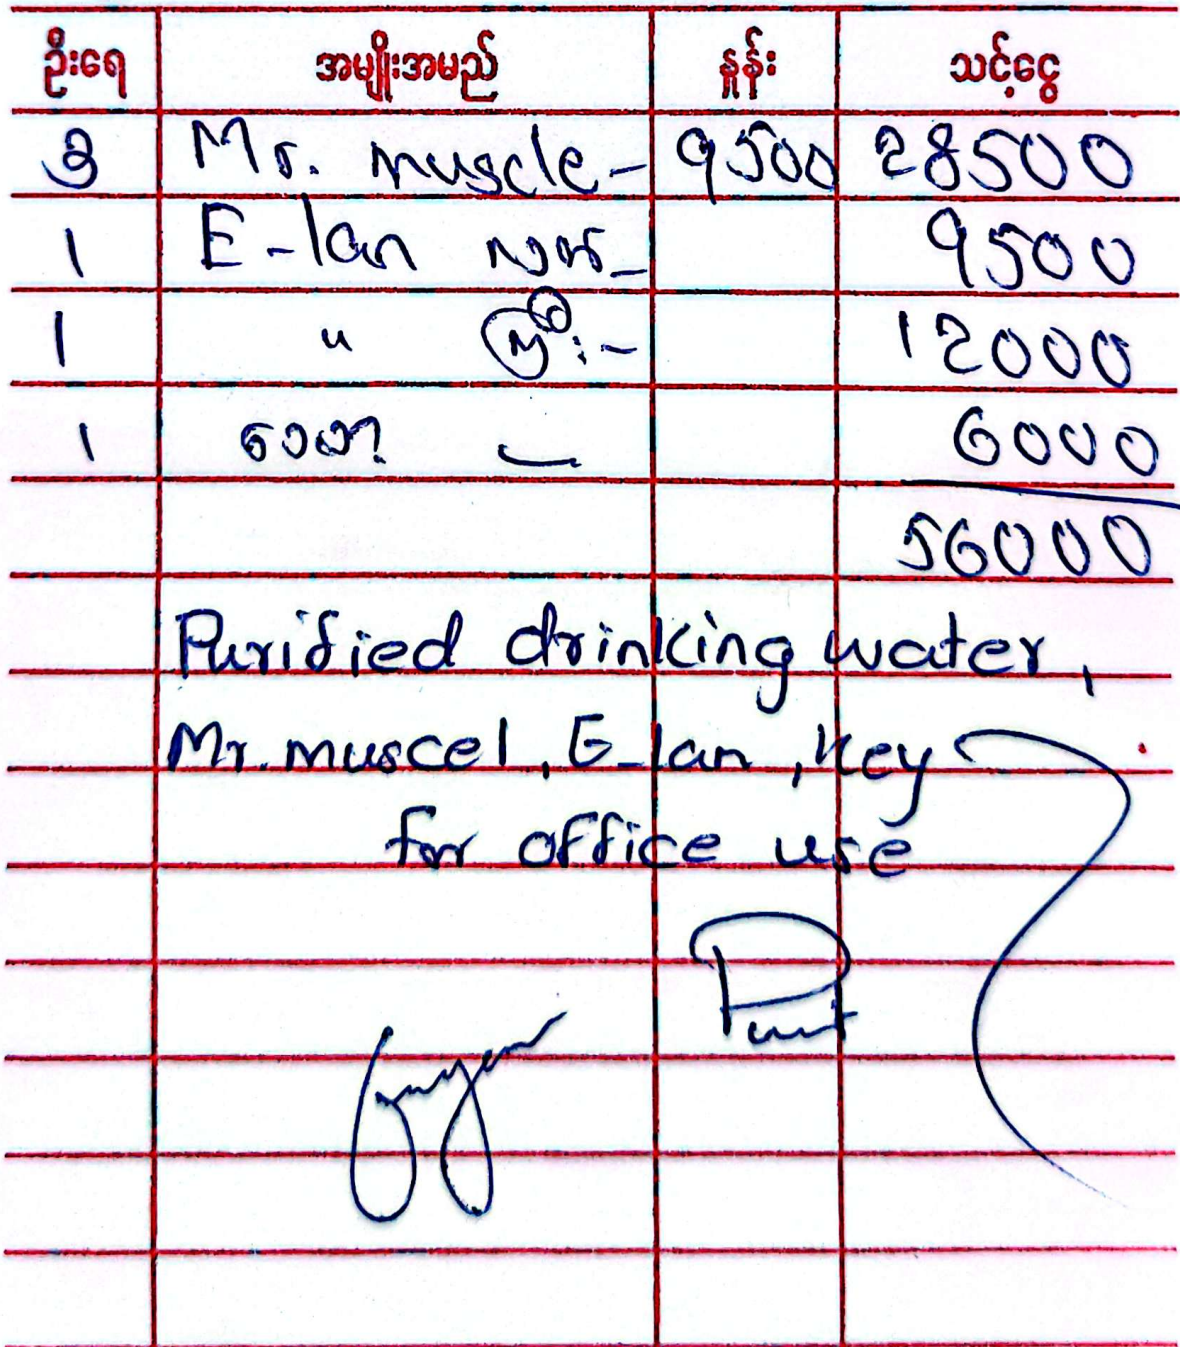 ဦးရေ အမျိုးအမည် နှုန်း သင့်ငွေ
3 Mr. muscle - 9500 28500
1 E-lan - 9500
1 " ကြီး - 12000
1 သော့ - 6000
56000
Purified drinking water,
Mr. muscel, E-lan, Key
for office use